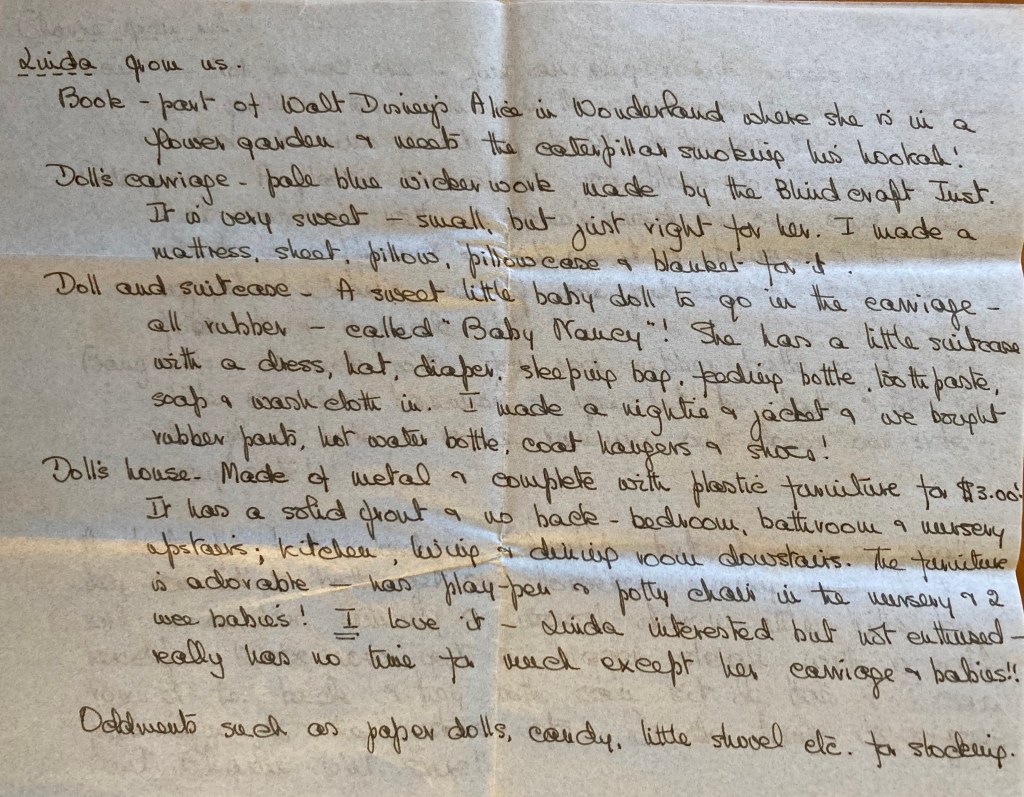 Linda from us.
Book - part of Walt Disney's Alice in Wonderland where she is in a
flower garden & meets the caterpillar smoking his hookah!
Doll's carriage - pale blue wicker work made by the Blind craft Inst.
It is very sweet - small, but just right for her. I made a
mattress, sheet, pillow, pillow case & blanket for it.
Doll and suitcase - A sweet little baby doll to go in the carriage -
all rubber - called "Baby Nancy"! She has a little suitcase
with a dress, hat, diaper, sleeping bag, feeding bottle, tooth paste,
soap & wash cloth in. I made a nightie & jacket & we bought
rubber pants, hot water bottle, coat hangers & shoes!
Doll's house - Made of metal & complete with plastic furniture for $3.00!
It has a solid front & no back - bedroom, bathroom & nursery
upstairs; kitchen, living & dining room downstairs. The furniture
is adorable - has play-pen & potty chair in the nursery & 2
wee babies! I love it - Linda interested but not enthused -
really has no time for much except her carriage & babies!!
Oddments such as paper dolls, candy, little shovel etc. for stocking.